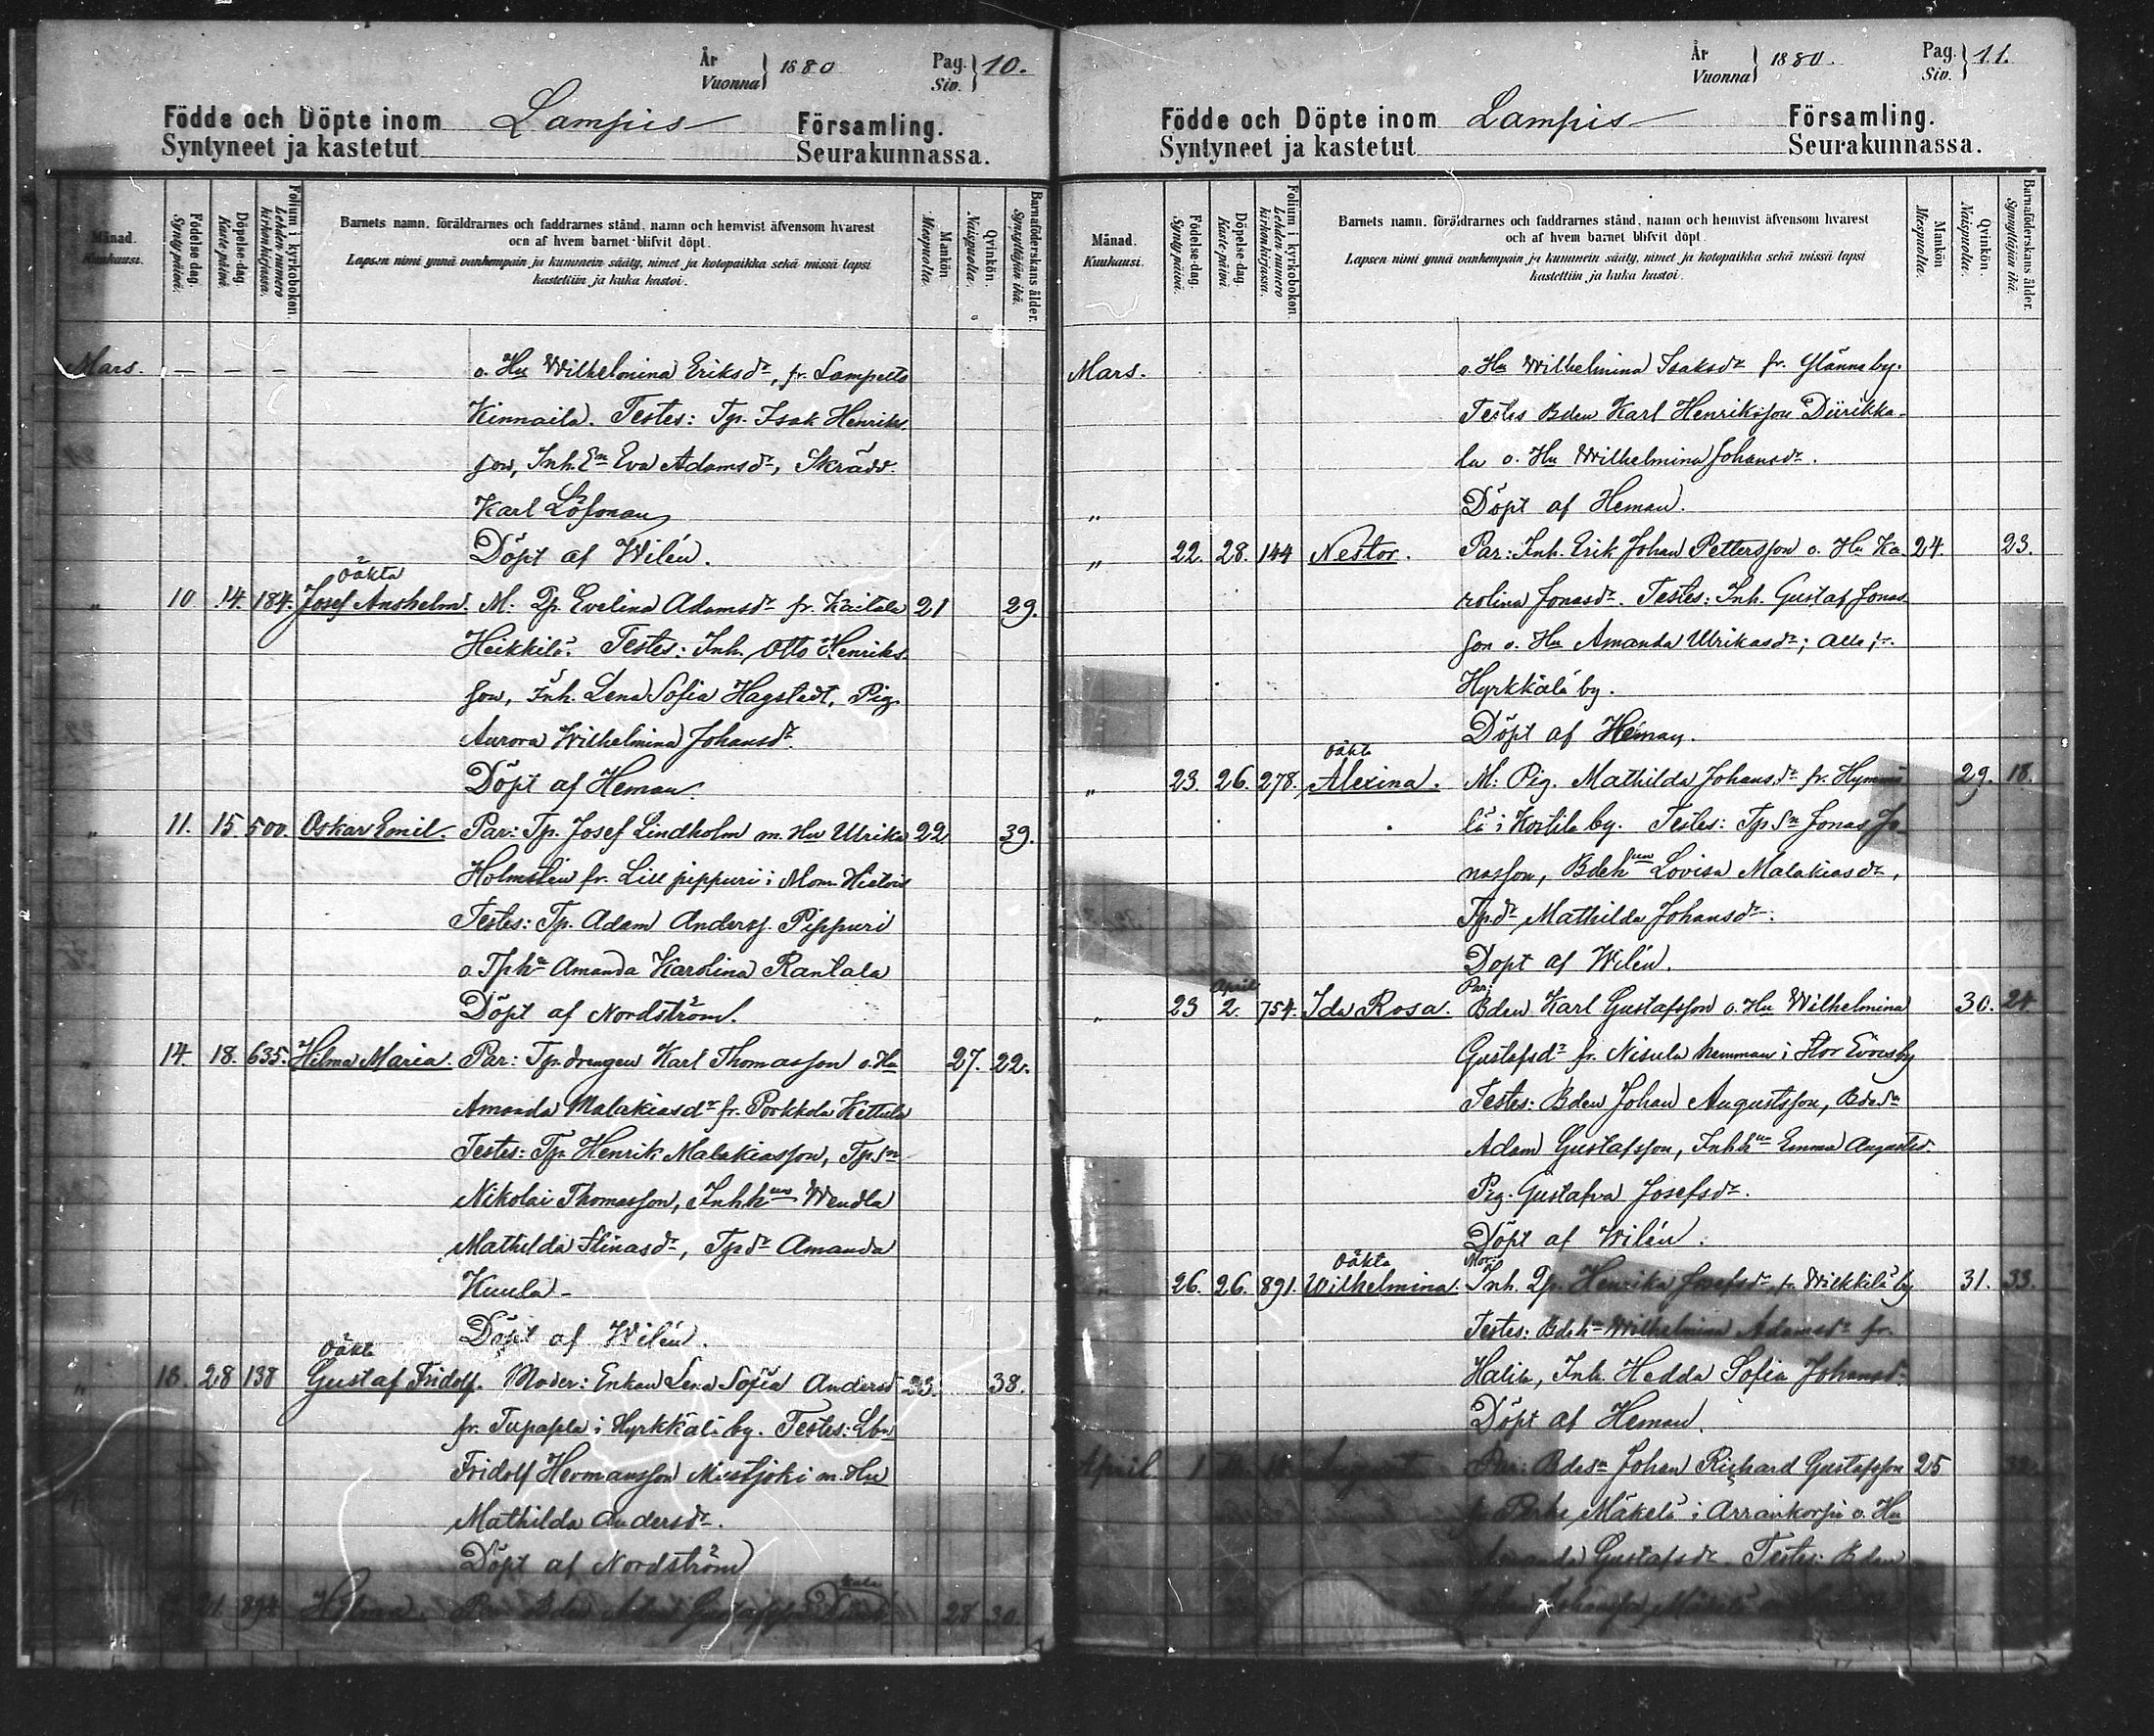 År
Vuonna 1880
Pag.
Siv. 10.
Födde och Döpte inom Lampis Församling.
Syntyneet ja kastetut Seurakunnassa.
Månad.
Kuukausi.
Födelse dag.
Syntypäivä.
Döpelse dag.
Kastepäivä.
Folium i kyrkoboken.
Lehden numero kirkonkirjassa.
Barnets namn, föräldrarnes och faddrarnes stånd, namn och hemvist äfvensom hvarest
och af hvem barnet blifvit döpt.
Lapsen nimi ynnä vanhempain ja kummein sääty, nimet ja kotopaikka sekä missä lapsi
kastettiin ja kuka kastoi.
Mankön.
Miespuolia.
Qvinkön.
Naispuolia.
Barnaföderskans ålder.
Synnyttäjän ikä.
Mars. — — — — o. Hu Wilhelmina Eriksdr, fr. Lampelto
Kinnaila. Testes: Tp. Isak Henriks
son, Inh. En Eva Adamsdr, Skrädd.
Karl Löfman
Döpt af Wilén.
oäkta
" 10 14. 184. Josef Anshelm. M: Qp. Evelina Adamsdr fr. Kaitala 21 29.
Heikkilä. Testes: Inh. Otto Henriks
son, Inh. Lena Sofia Hagstedt, Pig.
Aurora Wilhelmina Johansdr.
Döpt af Heman.
" 11. 15 500. Oskar Emil. Par: Tp. Josef Lindholm m. Hu Ulrika 22 39.
Holmstén fr. Lill pippuri i Mom. Hietois
Testes: Tp. Adam Anderss. Pippuri
o. Tphu Amanda Karolina Rantala
Döpt af Nordström.
" 14. 18. 635. Hilma Maria. Par: Tp. drengen Karl Thomasson o. Hu 27. 22.
Amanda Malakiasdr fr. Porkkola Kettula
Testes: Tp. Henrik Malakiasson, Tpsn
Nikolai Thomasson, Inhhun Wendla
Mathilda Stinasdr, Tpdr Amanda
Kuula.
Döpt af Wilén.
oäkta
" 18. 28 138 Gustaf Fridolf. Moder: Enkan Lena Sofia Andersdr 23. 38.
fr. i Hyrkkälä by. Testes: Lbn
Fridolf Hermansson Mustjoki m. Hu
Mathilda Andersdr.
Döpt af Nordström
21 894 Hilma. Par: Bden Adam Gustafsson 28 30.
År
Vuonna 1880.
Pag.
Siv. 11.
Födde och Döpte inom Lampis Församling.
Syntyneet ja kastetut Seurakunnassa.
Månad.
Kuukausi.
Födelse dag.
Syntypäivä.
Döpelse dag.
Kastepäivä.
Folium i kyrkoboken.
Lehden numero kirkonkirjassa.
Barnets namn, föräldrarnes och faddrarnes stånd, namn och hemvist äfvensom hvarest
och af hvem barnet blifvit döpt.
Lapsen nimi ynnä vanhempain ja kummein sääty, nimet ja kotopaikka sekä missä lapsi
kastettiin ja kuka kastoi.
Mankön
Miespuolia.
Qvinkön.
Naispuolia.
Barnaföderskans ålder.
Synnyttäjän ikä.
Mars. o. Hu Wilhelmina Isaksdr fr. Ylänne by.
Testes Bden Karl Henriksson Diirikka-
la o. Hu Wilhelmina Johansdr.
" Döpt af Heman.
" 22. 28. 144 Nestor. Par: Inh. Erik Johan Pettersson o. Hu Ka 24. 23.
rolina Jonasdr. Testes: Inh. Gustaf Jonas
son o. Hu Amanda Ulrikasdr; alla fr.
Hyrkkälä by.
Döpt af Heman.
oäkta
" 23. 26. 278. Alexina. M: Pig. Mathilda Johansdr fr. Hymmi 29. 18.
lä i Kostila by. Testes: Tpsn Jonas Jo
nasson, Bdehun Lovisa Malakiasdr,
Tpdr Mathilda Johansdr.
Döpt af Wilén.
April Par:
" 23 2. 754. Ida Rosa. Bden Karl Gustafsson o. Hu Wilhelmina 30. 24.
Gustafsdr fr. Nisula hemman i Stor Evois by
Testes: Bden Johan Augustsson, Bdesn
Adam Gustafsson, Inhhun Emma Augustsdr.
Pig. Gustafva Josefsdr.
Döpt af Wilén.
oäkta Mor:
" 26. 26. 891. Wilhelmina. Inh. Qp. Henrika Josefsdr fr. Wilkkilä by 31. 33.
Testes: Bdehn Wilhelmina Adamsdr fr.
Halila, Inh. Hedda Sofia Johansdr.
Döpt af Heman.
April 1 August Par: Bdesn Johan Richard Gustafsson 25
Perhe Mäkelä i Arrankorpi o. Hu
Amanda Gustafsdr. Testes: Bden
Johan Johansson Mäkelä